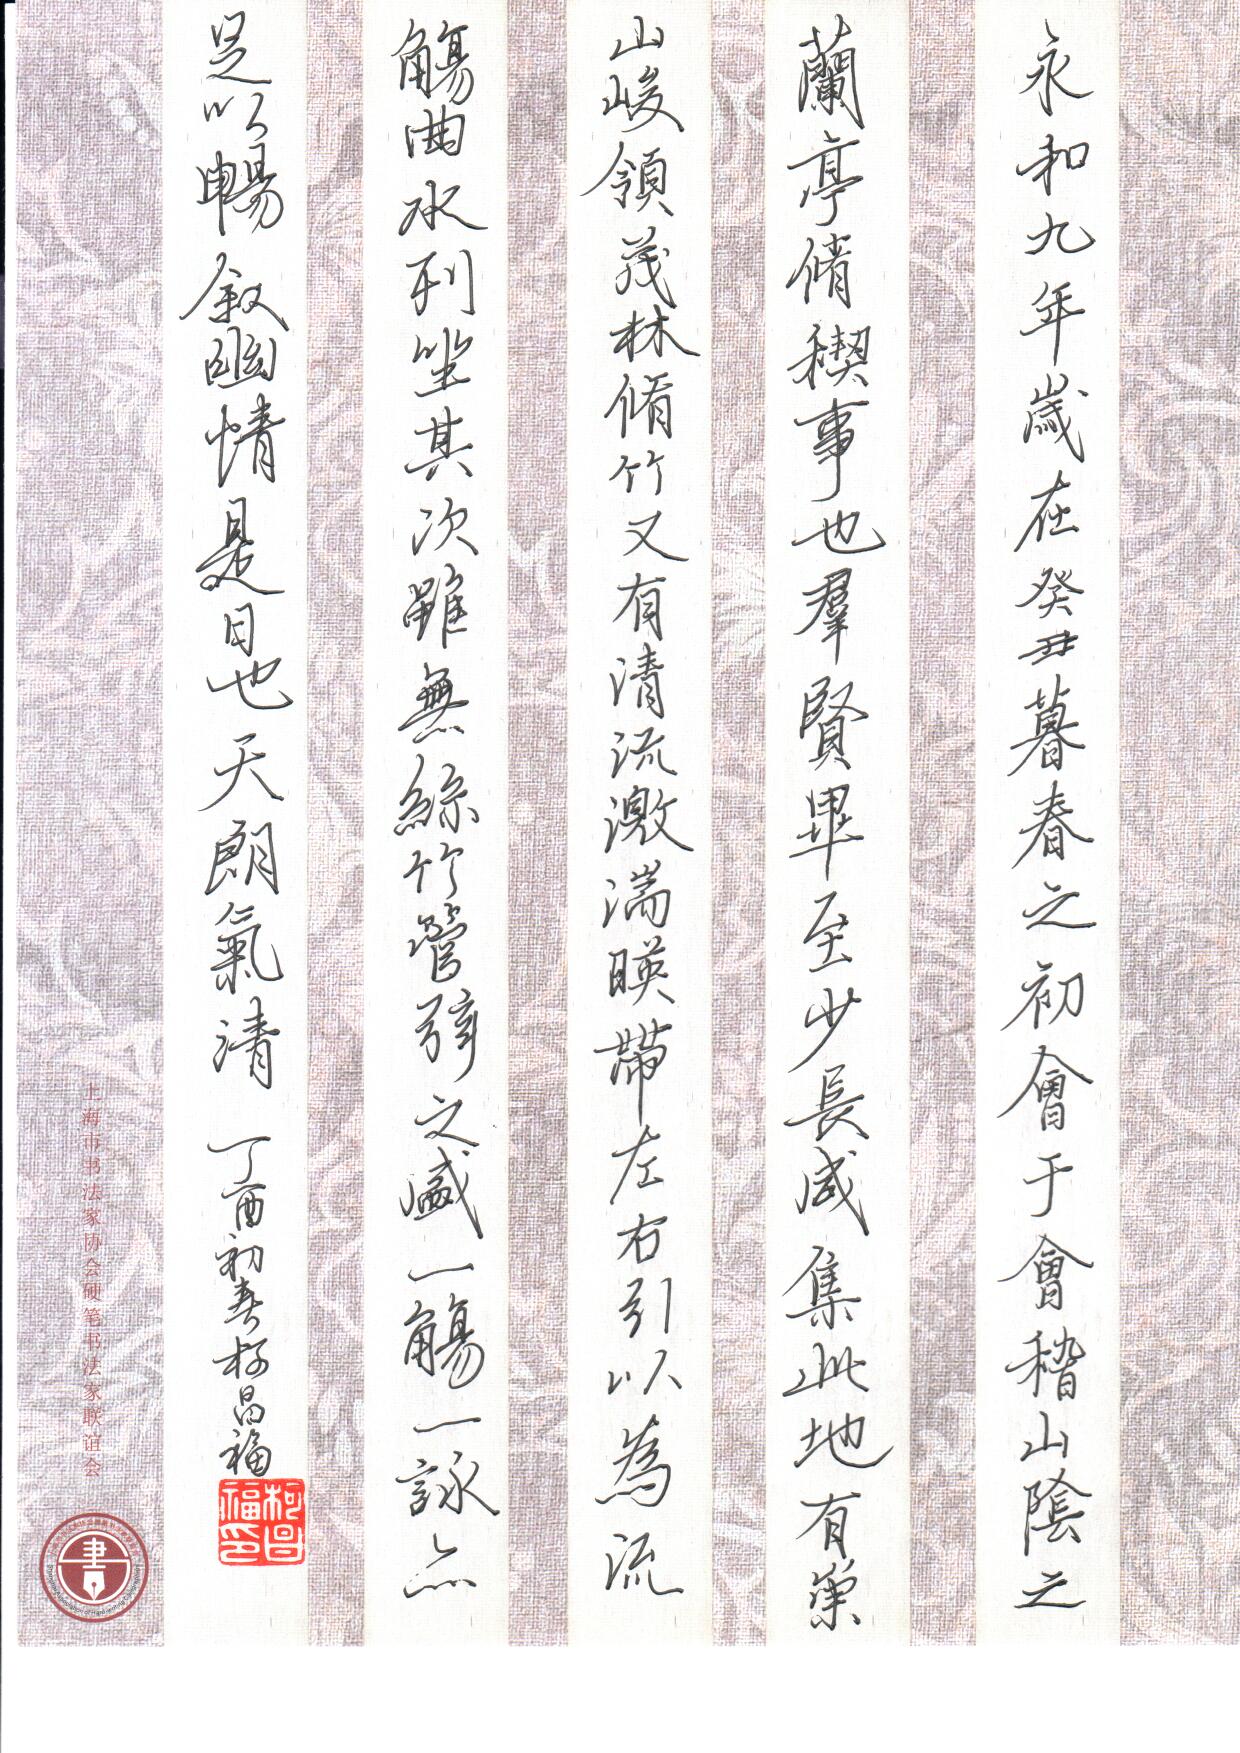 永和九年歲在癸丑暮春之初會于會稽山陰之
蘭亭脩稧事也羣賢畢至少長咸集此地有崇
山峻領茂林脩竹又有清流激湍暎帶左右引以為流
觴曲水列坐其次雖無絲竹管弦之盛一觴一詠亦
足以暢敘幽情是日也天朗氣清 丁酉初春柯昌福
柯昌福印
上海市书法家协会硬笔书法家联谊会
書